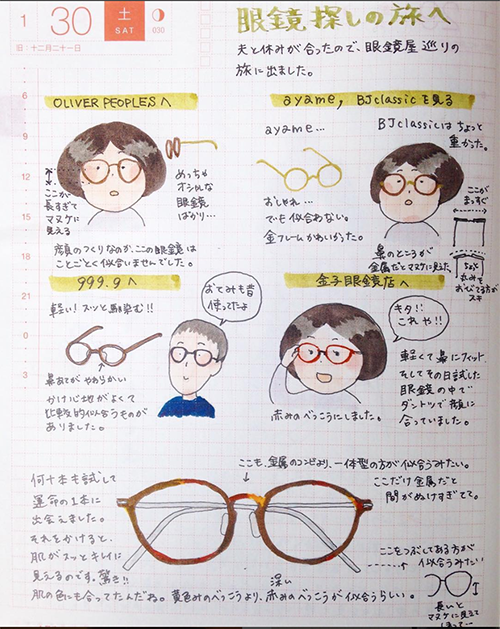 1
30
土
SAT
030
旧:十二月二十一日
眼鏡探しの旅へ
夫と休みが合ったので、眼鏡屋巡りの
旅に出ました。
6
9
12
15
18
21
0
3
OLIVER PEOPLESへ
ここが
長すぎて
マヌケに
見える
めっちゃ
オシャレな
眼鏡
ばかり…
顔のつくりなのか、ここの眼鏡は
ことごとく似合いませんでした。
ayame, BJclassicを見る
ayame…
BJclassicはちょっと
重かった。
おしゃれ…
でも似合わない。
金フレームかわいかった。
鼻のところが
金属だとマヌケに見えた
ここが
まっすぐ
丸みを
おびてる方が
スキ
999.9へ
軽い!スッと馴染む!!
おてみも昔
使ってたよ
鼻あてがやわらかい
かけ心地がよくて
比較的似合うものが
ありました。
金子眼鏡店へ
キタ!!
これや!!
軽くて鼻にフィット。
そしてその日試した
眼鏡の中で
ダントツで顔に
合っていました。
赤みのべっこうにしました。
何十本も試して
運命の1本に
出会えました。
それをかけると、
肌がスッとキレイに
見えるのです。驚き!!
肌の色にも合ってたんだね。黄色みのべっこうより、深い赤みのべっこうが似合うらしい。
ここも、金属のコンビより、一体型の方が似合うみたい。
ここだけ金属だと
間がぬけすぎてて。
ここをつぶしてある方が
似合うみたい
長いと
マヌケに見えて
しまって…